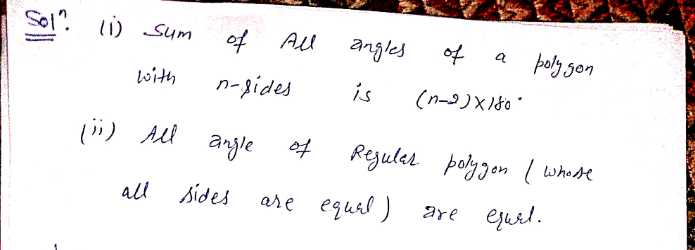 Solⁿ. (i) Sum of All angles of a polygon
with n-sides is (n-2)×180°
(ii) All angle of Regular polygon (whose
all sides are equal) are equal.